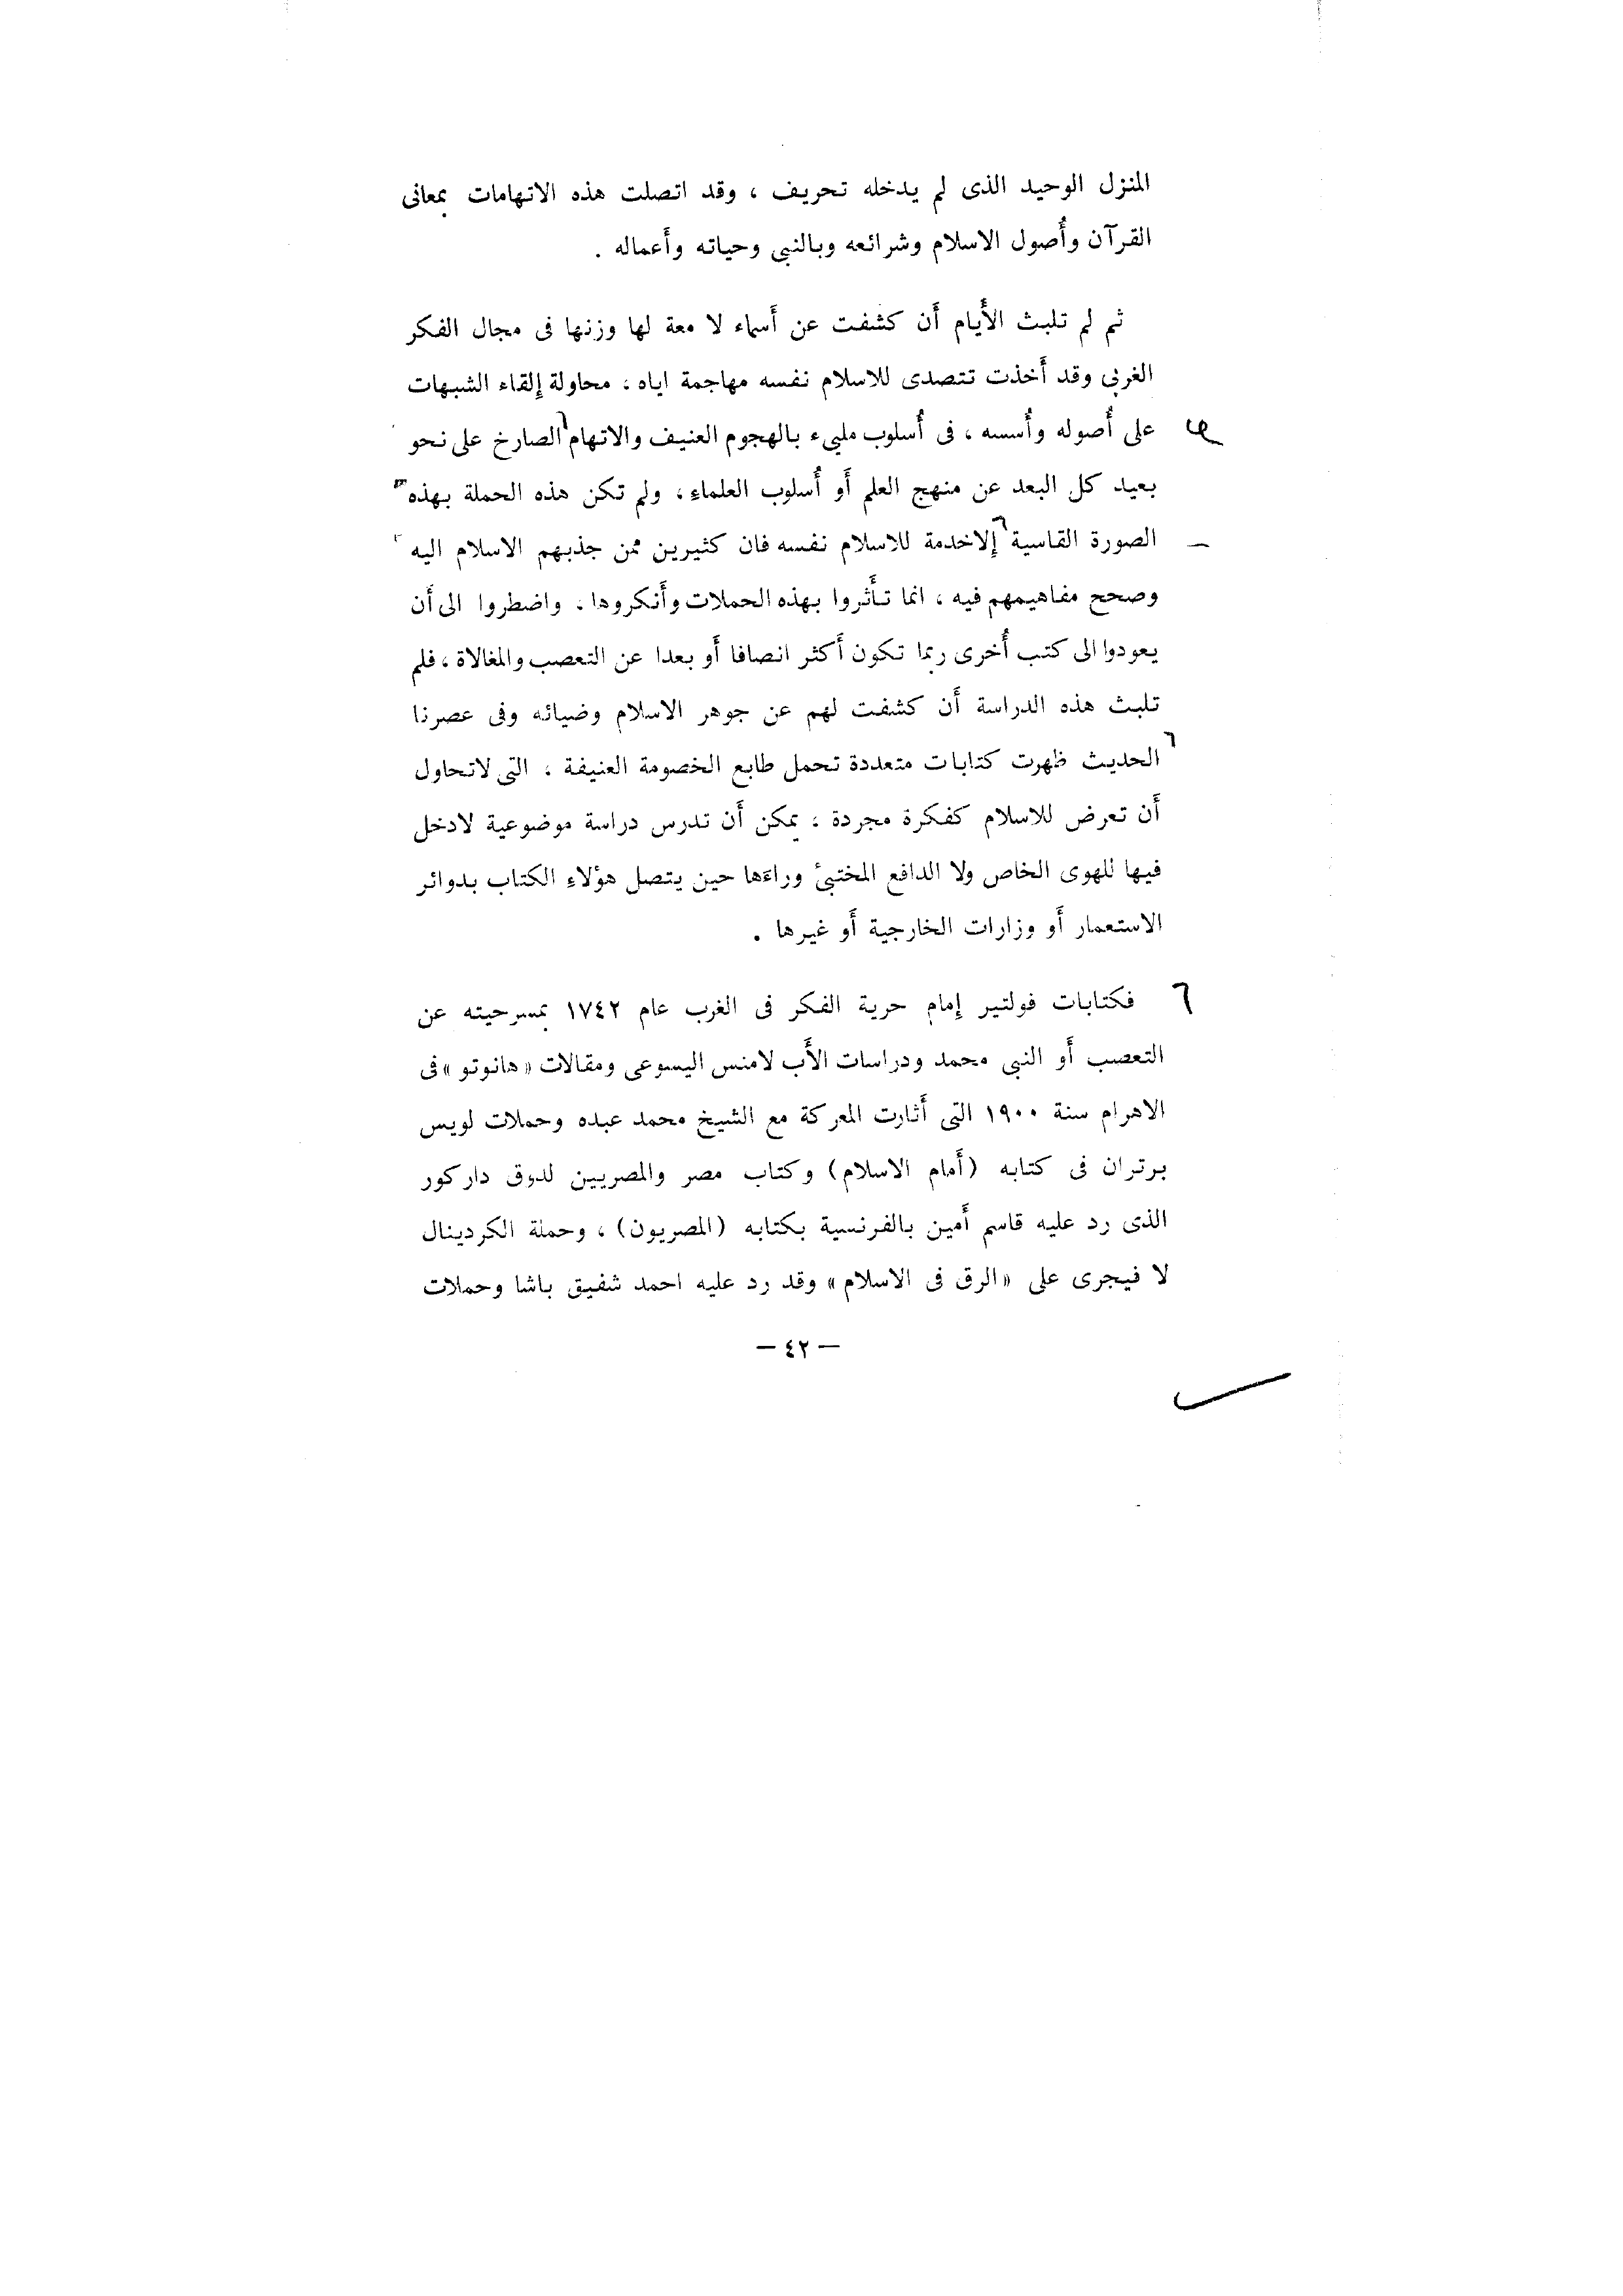 المنزل الوحيد الذى لم يدخله تحريف ، وقد اتصلت هذه الاتهامات بمعانى
القرآن وأُصول الاسلام وشرائعه وبالنبى وحياته وأَعماله .
ثم لم تلبث الأَيام أَن كشفت عن أَسماء لا معة لها وزنها فى مجال الفكر
الغربى وقد أَخذت تتصدى للاسلام نفسه مهاجمة اياه ، محاولة إلقاء الشبهات
على أُصوله وأُسسه ، فى أُسلوب مليىء بالهجوم العنيف والاتهام الصارخ على نحو
بعيد كل البعد عن منهج العلم أَو أُسلوب العلماءِ ، ولم تكن هذه الحملة بهذه
الصورة القاسية إلاخدمة للاسلام نفسه فان كثيرين ممن جذبهم الاسلام اليه
وصحح مفاهيمهم فيه ، انما تأَثروا بهذه الحملات وأَنكروها ، واضطروا الى أَن
يعودوا الى كتب أُخرى ربما تكون أَكثر انصافا أَو بعدا عن التعصب والمغالاة ، فلم
تلبث هذه الدراسة أَن كشفت لهم عن جوهر الاسلام وضيائه وفى عصرنا
الحديث ظهرت كتابات متعددة تحمل طابع الخصومة العنيفة ، التى لاتحاول
أَن تعرض للاسلام كفكرة مجردة ، يمكن أَن تدرس دراسة موضوعية لادخل
فيها للهوى الخاص ولا الدافع المختبئ وراءَها حين يتصل هؤلاءِ الكتاب بدوائر
الاستعمار أَو وزارات الخارجية أَو غيرها .
فكتابات فولتير إمام حرية الفكر فى الغرب عام ١٧٤٢ بمسرحيته عن
التعصب أَو النبى محمد ودراسات الأَب لامنس اليسوعى ومقالات «هانوتو» فى
الاهرام سنة ١٩٠٠ التى أَثارت المعركة مع الشيخ محمد عبده وحملات لويس
برتران فى كتابه (أَمام الاسلام) وكتاب مصر والمصريين لدوق داركور
الذى رد عليه قاسم أَمين بالفرنسية بكتابه (المصريون) ، وحملة الكردينال
لا فيجرى على «الرق فى الاسلام» وقد رد عليه احمد شفيق باشا وحملات
— ٤٢ —